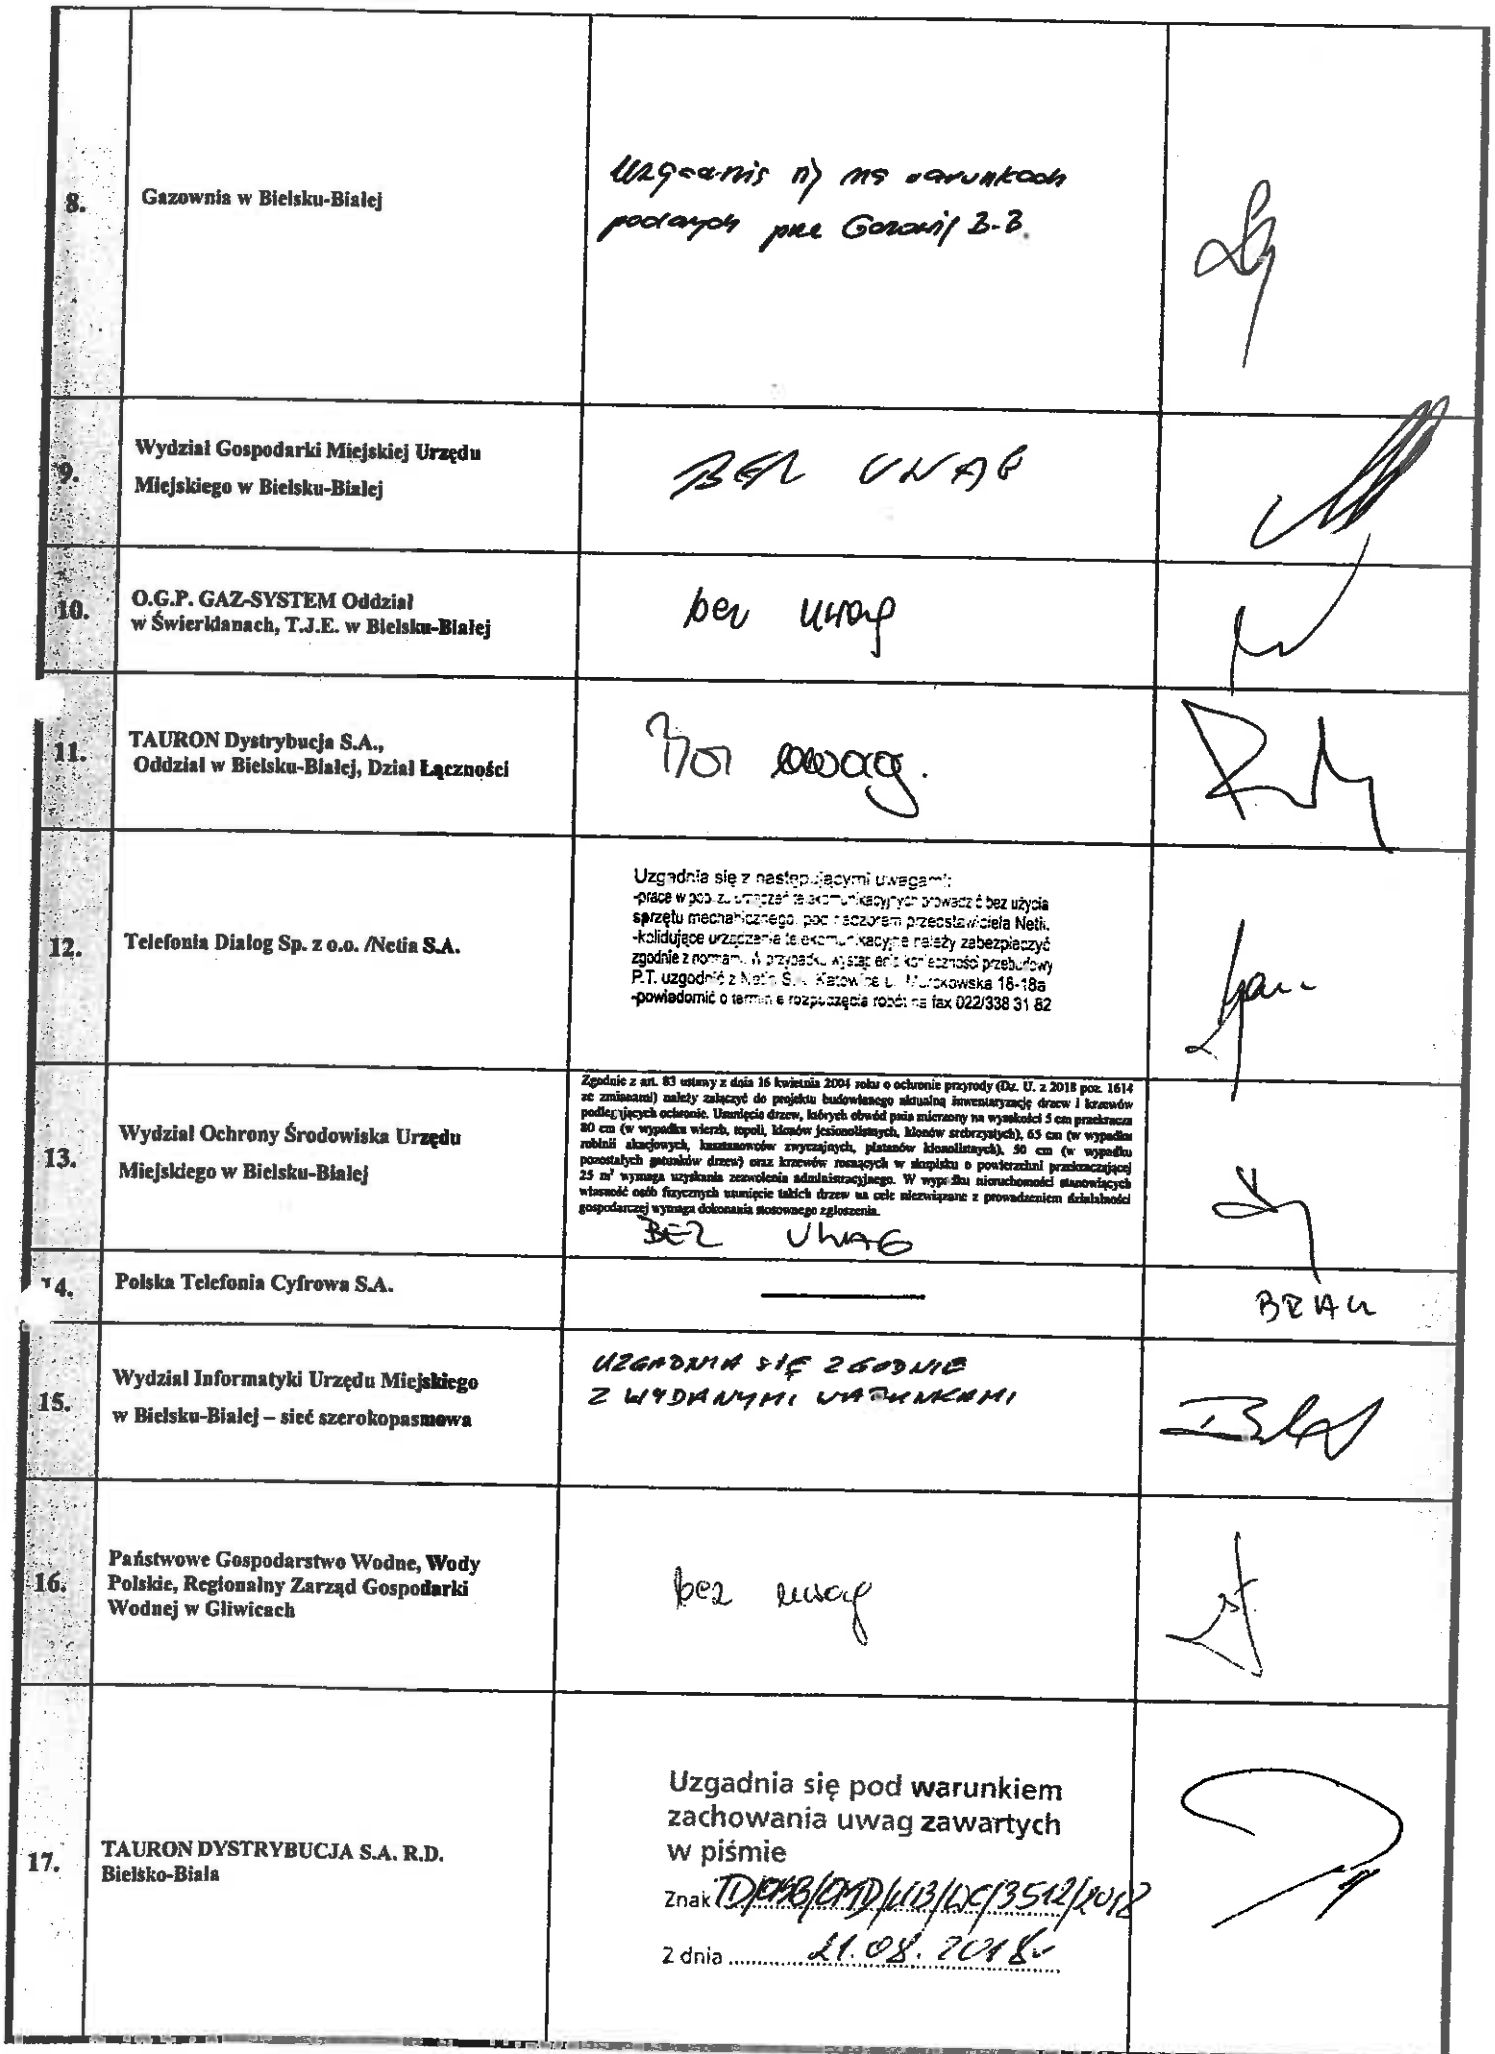 8.
Gazownia w Bielsku-Białej
na warunkach
podanych B-B.
9.
Wydział Gospodarki Miejskiej Urzędu
Miejskiego w Bielsku-Białej
BEZ UWAG
10.
O.G.P. GAZ-SYSTEM Oddział
w Świerklanach, T.J.E. w Bielsku-Białej
bez uwag
11.
TAURON Dystrybucja S.A.,
Oddział w Bielsku-Białej, Dział Łączności
uwag.
12.
Telefonia Dialog Sp. z o.o. /Netia S.A.
Uzgadnia się z następującymi uwagami:
-prace w pobliżu urządzeń telekomunikacyjnych prowadzić bez użycia
sprzętu mechanicznego, pod nadzorem przedstawiciela Netii.
-kolidujące urządzenia telekomunikacyjne należy zabezpieczyć
zgodnie z normami. W przypadku wystąpienia konieczności przebudowy
P.T. uzgodnić z Netia S.A. Katowice ul. Murckowska 16-18a
-powiadomić o terminie rozpoczęcia robót na fax 022/338 31 82
13.
Wydział Ochrony Środowiska Urzędu
Miejskiego w Bielsku-Białej
Zgodnie z art. 83 ustawy z dnia 16 kwietnia 2004 roku o ochronie przyrody (Dz. U. z 2018 poz. 1614
ze zmianami) należy załączyć do projektu budowlanego aktualną inwentaryzację drzew i krzewów
podlegających ochronie. Usunięcie drzew, których obwód pnia mierzony na wysokości 5 cm przekracza
80 cm (w wypadku wierzb, topoli, klonów jesionolistnych, klonów srebrzystych), 65 cm (w wypadku
robinii akacjowych, kasztanowców zwyczajnych, platanów klonolistnych), 50 cm (w wypadku
pozostałych gatunków drzew) oraz krzewów rosnących w skupisku o powierzchni przekraczającej
25 m² wymaga uzyskania zezwolenia administracyjnego. W wypadku nieruchomości stanowiących
własność osób fizycznych usunięcie takich drzew na cele niezwiązane z prowadzeniem działalności
gospodarczej wymaga dokonania stosownego zgłoszenia.
BEZ UWAG
14.
Polska Telefonia Cyfrowa S.A.
BRAK
15.
Wydział Informatyki Urzędu Miejskiego
w Bielsku-Białej – sieć szerokopasmowa
UZGADNIA SIĘ ZGODNIE
Z WYDANYMI WARUNKAMI
16.
Państwowe Gospodarstwo Wodne, Wody
Polskie, Regionalny Zarząd Gospodarki
Wodnej w Gliwicach
bez uwag
17.
TAURON DYSTRYBUCJA S.A. R.D.
Bielsko-Biała
Uzgadnia się pod warunkiem
zachowania uwag zawartych
w piśmie
Znak
Z dnia 21.08.2018r